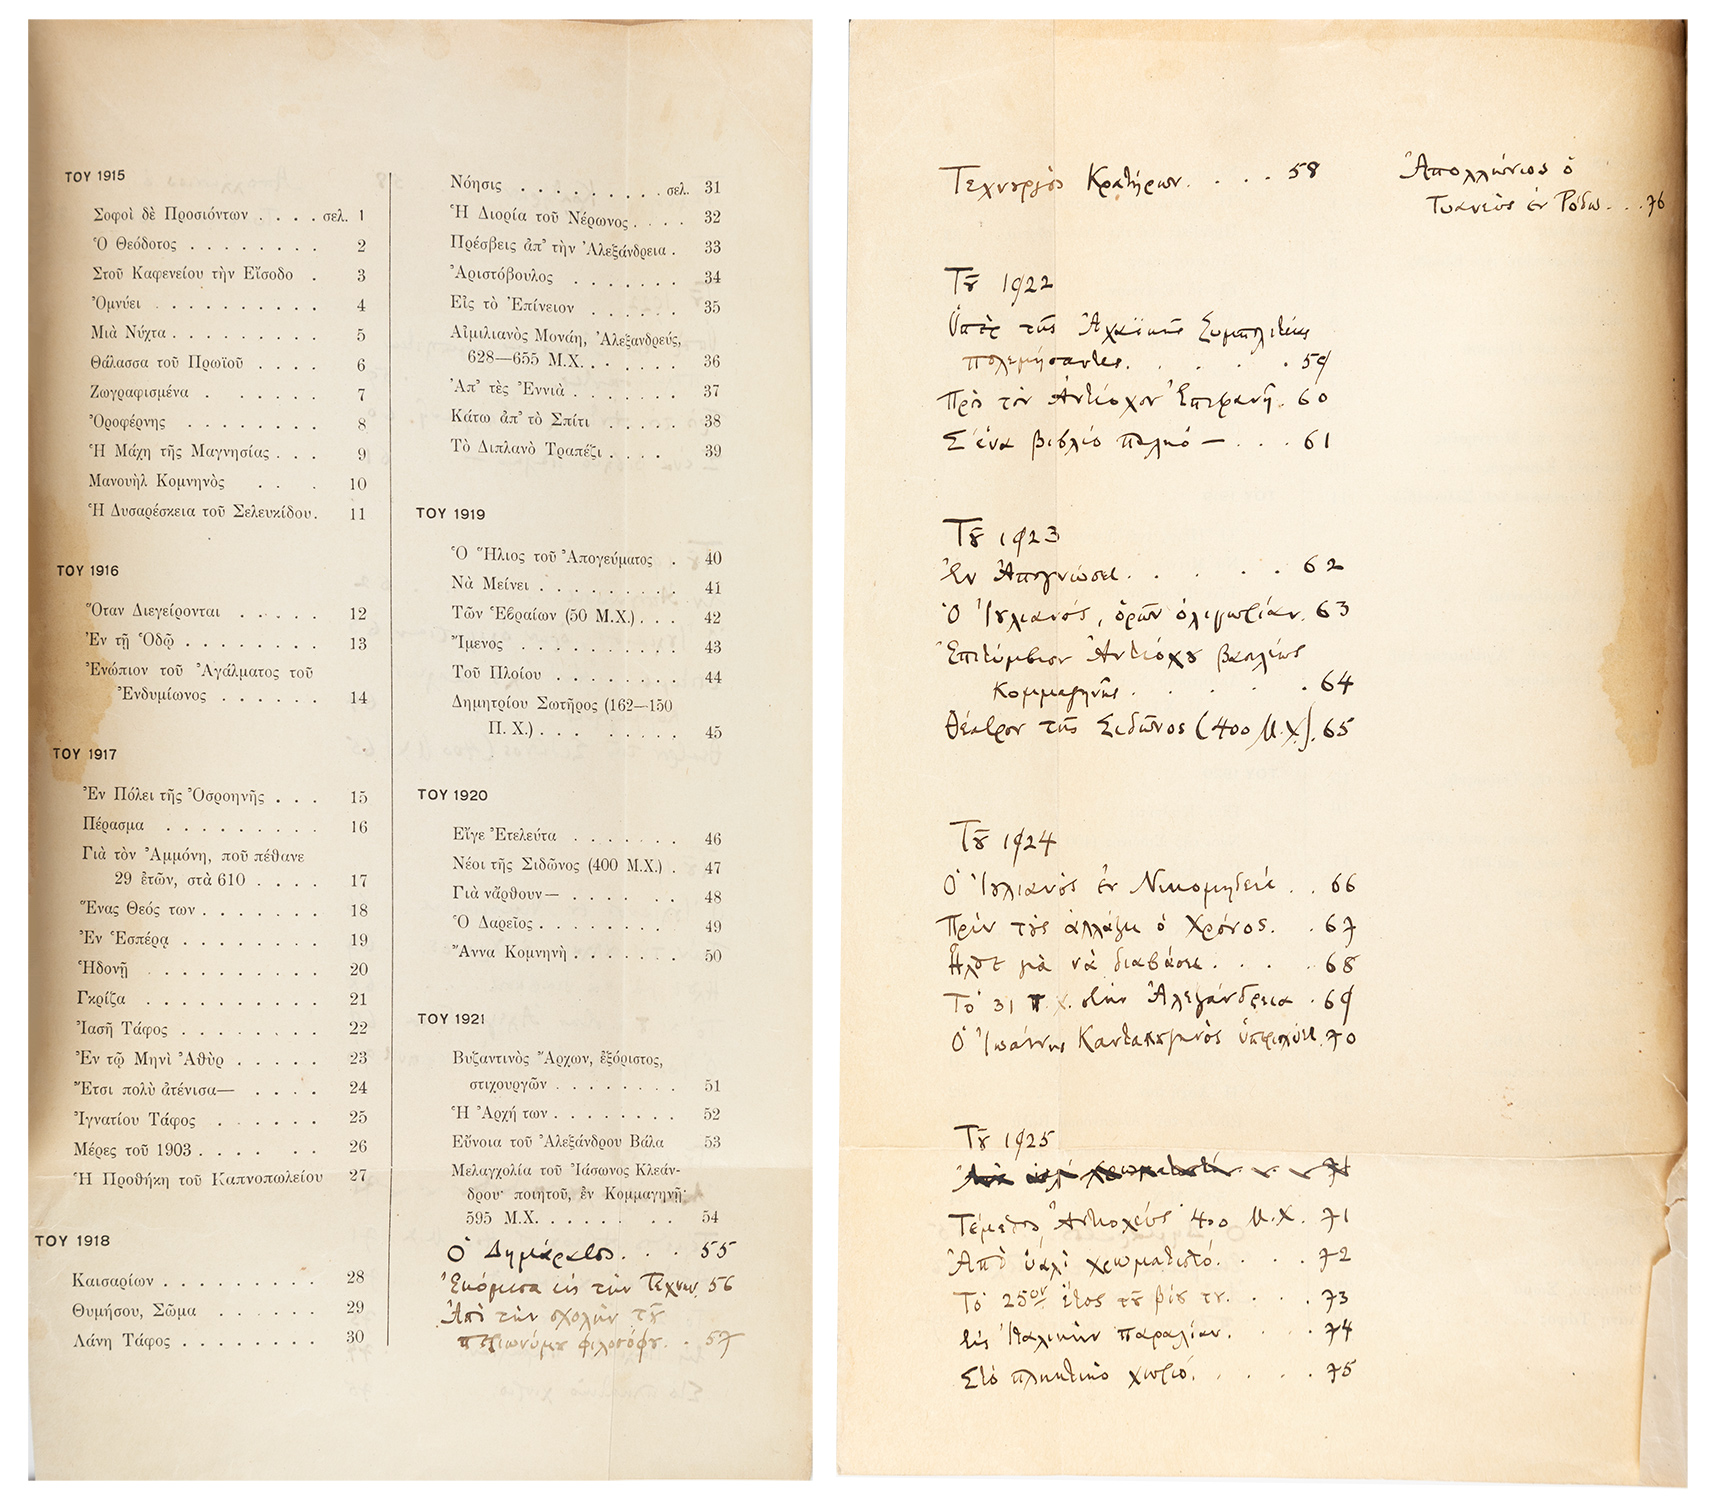 ΤΟΥ 1915
Σοφοὶ δὲ Προσιόντων . . . . σελ. 1
Ὁ Θεόδοτος . . . . . . . . 2
Στοῦ Καφενείου τὴν Εἴσοδο . 3
Ὀμνύει . . . . . . . . . . 4
Μιὰ Νύχτα . . . . . . . . . 5
Θάλασσα τοῦ Πρωϊοῦ . . . . 6
Ζωγραφισμένα . . . . . . 7
Ὀροφέρνης . . . . . . . . 8
Ἡ Μάχη τῆς Μαγνησίας . . . 9
Μανουὴλ Κομνηνὸς . . . 10
Ἡ Δυσαρέσκεια τοῦ Σελευκίδου. 11
ΤΟΥ 1916
Ὅταν Διεγείρονται . . . . . 12
Ἐν τῇ Ὁδῷ . . . . . . . . 13
Ἐνώπιον τοῦ Ἀγάλματος τοῦ
Ἐνδυμίωνος . . . . . . 14
ΤΟΥ 1917
Ἐν Πόλει τῆς Ὀσροηνῆς . . . 15
Πέρασμα . . . . . . . . . 16
Γιὰ τὸν Ἀμμόνη, ποῦ πέθανε
29 ἐτῶν, στὰ 610 . . . . 17
Ἕνας Θεός των . . . . . . . 18
Ἐν Ἑσπέρᾳ . . . . . . . . 19
Ἡδονῇ . . . . . . . . . . 20
Γκρίζα . . . . . . . . . . 21
Ἰασῆ Τάφος . . . . . . . . 22
Ἐν τῷ Μηνὶ Ἀθὺρ . . . . . 23
Ἔτσι πολὺ ἀτένισα— . . . . 24
Ἰγνατίου Τάφος . . . . . . 25
Μέρες τοῦ 1903 . . . . . . 26
Ἡ Προθήκη τοῦ Καπνοπωλείου 27
ΤΟΥ 1918
Καισαρίων . . . . . . . . . 28
Θυμήσου, Σῶμα . . . . . . 29
Λάνη Τάφος . . . . . . . . 30
Νόησις . . . . . . . . . σελ. 31
Ἡ Διορία τοῦ Νέρωνος . . . . 32
Πρέσβεις ἀπ' τὴν Ἀλεξάνδρεια . 33
Ἀριστόβουλος . . . . . . . 34
Εἰς τὸ Ἐπίνειον . . . . . . 35
Αἰμιλιανὸς Μονάη, Ἀλεξανδρεύς,
628—655 Μ.Χ. . . . . . . 36
Ἀπ' τὲς Ἐννιὰ . . . . . . . 37
Κάτω ἀπ' τὸ Σπίτι . . . . . 38
Τὸ Διπλανὸ Τραπέζι . . . . 39
ΤΟΥ 1919
Ὁ Ἥλιος τοῦ Ἀπογεύματος . 40
Νὰ Μείνει . . . . . . . . . 41
Τῶν Ἑβραίων (50 Μ.Χ.) . . . 42
Ἴμενος . . . . . . . . . . 43
Τοῦ Πλοίου . . . . . . . . 44
Δημητρίου Σωτῆρος (162—150
Π. Χ.) . . . . . . . . 45
ΤΟΥ 1920
Εἴγε Ἐτελεύτα . . . . . . . 46
Νέοι τῆς Σιδῶνος (400 Μ.Χ.) . 47
Γιὰ νἄρθουν — . . . . . . 48
Ὁ Δαρεῖος . . . . . . . . . 49
Ἄννα Κομνηνὴ . . . . . . . 50
ΤΟΥ 1921
Βυζαντινὸς Ἄρχων, ἐξόριστος,
στιχουργῶν . . . . . . . . 51
Ἡ Ἀρχή των . . . . . . . . 52
Εὔνοια τοῦ Ἀλεξάνδρου Βάλα 53
Μελαγχολία τοῦ Ἰάσωνος Κλεάν-
δρου· ποιητοῦ, ἐν Κομμαγηνῇ·
595 Μ.Χ. . . . . . . . 54
Ὁ Δημάρατος . . . 55
Ἐκόμισα εἰς τὴν Τέχνην 56
Ἀπὸ τὴν σχολὴν τοῦ
περιωνύμου φιλοσόφου . . 57
Τεχνουργὸς Κρατήρων . . . . 58
Τοῦ 1922
Ὑπὲρ τῆς Ἀχαϊκῆς Συμπολιτείας
πολεμήσαντες . . . . . 59
Πρὸς τὸν Ἀντίοχον Ἐπιφανῆ . 60
Σ' ἕνα βιβλίο παληό — . . . 61
Τοῦ 1923
Ἐν Ἀπογνώσει . . . . . 62
Ὁ Ἰουλιανός, ὁρῶν ὀλιγωρίαν . 63
Ἐπιτύμβιον Ἀντιόχου βασιλέως
Κομμαγηνῆς . . . . . 64
Θέατρον τῆς Σιδῶνος (400 Μ.Χ.) . 65
Τοῦ 1924
Ὁ Ἰουλιανὸς ἐν Νικομηδείᾳ . . 66
Πρὶν τοὺς ἀλλάξει ὁ Χρόνος . . 67
Ἦλθε γιὰ νὰ διαβάσει . . . . 68
Τὸ 31 π.Χ. στὴν Ἀλεξάνδρεια . 69
Ὁ Ἰωάννης Καντακουζηνὸς ὑπερισχύει . 70
Τοῦ 1925
Ἀπὸ ὑαλὶ χρωματιστό . . . 71
Τέμεθος, Ἀντιοχεύς 400 Μ.Χ. 71
Ἀπὸ ὑαλὶ χρωματιστό . . . . 72
Τὸ 25ον ἔτος τοῦ βίου του . . . . 73
Εἰς Ἰταλικὴν παραλίαν . . . . 74
Στὸ πληκτικὸ χωριό . . . . . 75
Ἀπολλώνιος ὁ
Τυανεὺς ἐν Ρόδῳ . . . 76